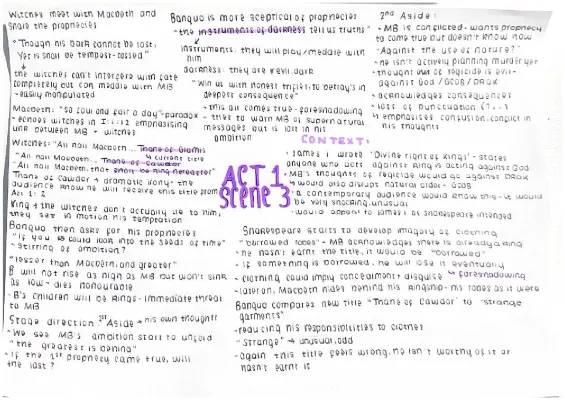 Witches meet with Macbeth and
share the prophecies
"Though his bark cannot be lost,
Yet it shall be tempest-tossed"
the witches can't interfere with fate
completely but can meddle with MB
-easily manipulated
Macbeth: "so foul and fair a day"-paradox
-echoes witches in emphasising
link between MB + witches
Witches: "All hail Macbeth... Thane of Glamis
↳ current title
"All hail Macbeth... Thane of Cawdor
"All hail Macbeth, that shalt be king hereafter"
Thane of Cawdor + dramatic irony- the
audience know he will receive this title from
Act 1: 2
King + the witches don't occupy us to him,
they set in motion his temptation
Banquo then asks for his prophecies
"If you could look into the seeds of time"
-stirring of ambition?
"lesser than Macbeth, and greater"
B will not rise as high as MB but won't sink
as low- dies honourable
-B's children will be kings- immediate threat
to MB
Stage direction 1st Aside → his own thoughts
-We see MB's ambition start to unfold
"the greatest is behind"
-If the 1st prophecy came true, will
the last?
Banquo is more sceptical of prophecies
-"the instruments of darkness tell us truths"
instruments: they will play/meddle with
him
darkness: they are evil, dark
"Win us with honest trifles, to betray's in
deepest consequence"
-this all comes true- foreshadowing
-tries to warn MB of supernatural
messages but is lost in his
ambition
ACT 1
Scene 3
2nd Aside:
-MB is conflicted- wants prophecy
to come true but doesn't know how
"Against the use of nature?"
-he isn't actively planning murder yet
-thought of regicide is evil-
against God/GCOB/DROK
-acknowledges consequences
-lots of punctuation (?,.)
↳ emphasises confusion, conflict in
his thoughts
CONTEXT:
-James I wrote "Divine right of Kings"- states
anyone who acts against King is acting against God
-MB's thoughts of regicide would go against DROK
+ would also disrupt natural order- GCOB
-a contemporary audience would know this- it would
be very shocking, unusual
-would appeal to James I as Shakespeare intended
Shakespeare starts to develop imagery of clothing
-"borrowed robes"- MB acknowledges there is already a king
-he hasn't earnt the title, it would be "borrowed"
-if something is borrowed, he will lose it eventually
-clothing could imply concealment + disguise ↳ foreshadowing
-later on, Macbeth hides behind his kingship- his robes as it were
Banquo compares new title "Thane of Cawdor" to "strange
garments"
-reducing his responsibilities to clothes
-"Strange" → unusual, odd
-again this title feels wrong, he isn't worthy of it or
hasn't earnt it